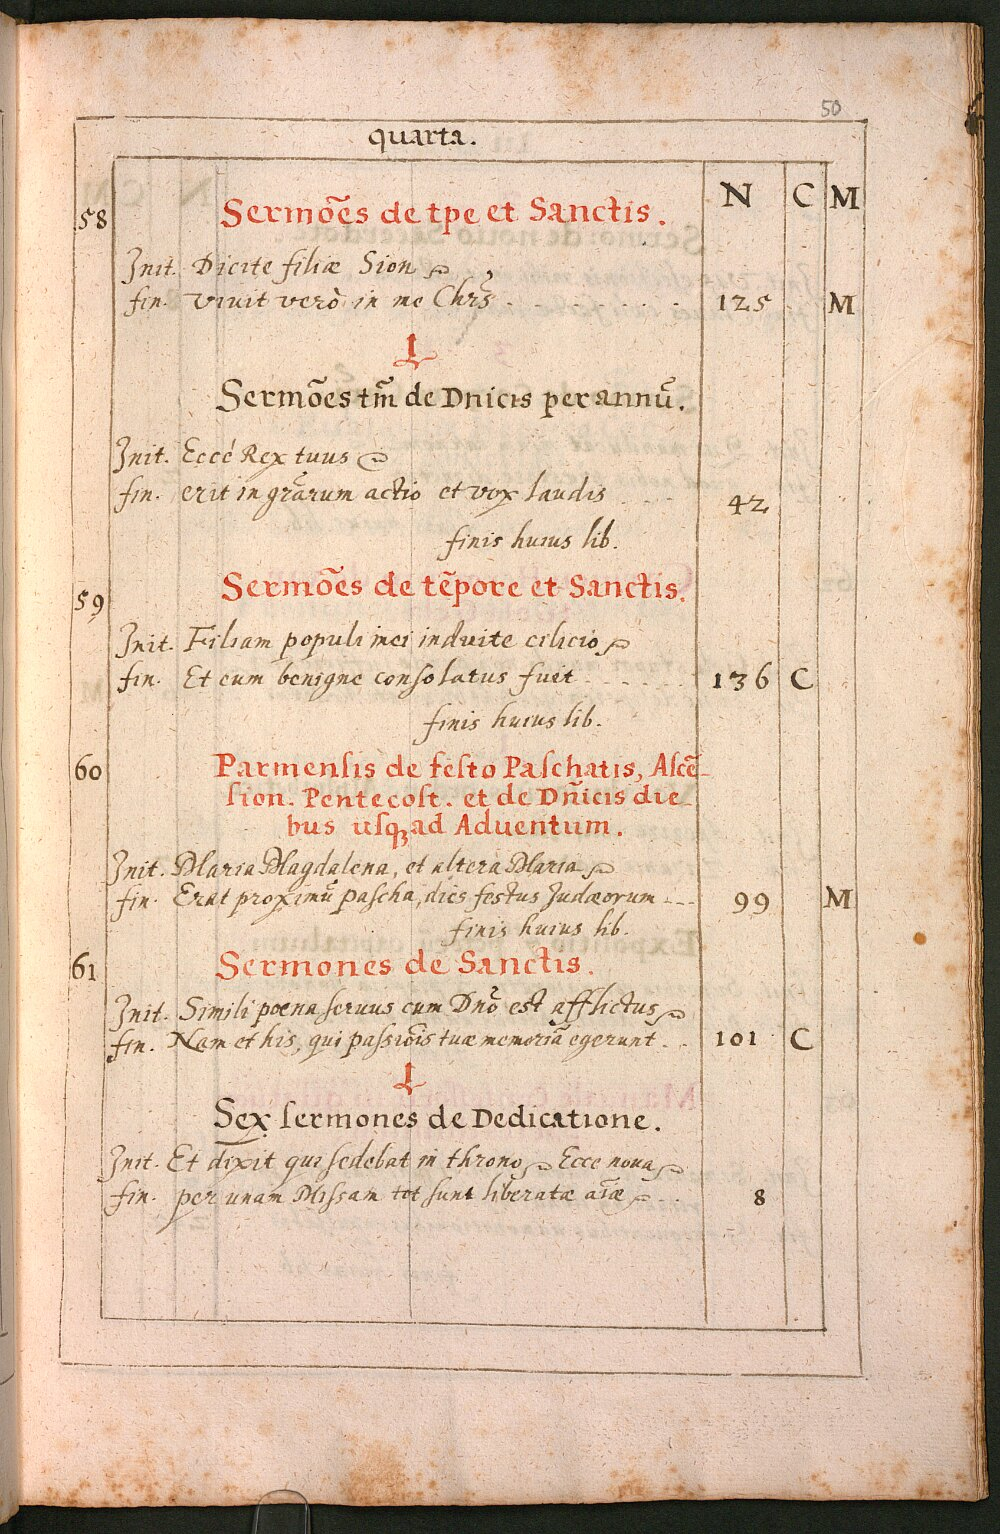 50
quarta.
N C M
58 Sermões de tpe et Sanctis.
Init. Dicite filiæ Sion
fin. vivit verò in me Chrs̃ 125 M
Sermões tm̃ de Dnicis per annũ.
Init. Eccé Rex tuus
fin. erit in grãrum actio et vox laudis 42
finis huius lib.
59 Sermões de tẽpore et Sanctis.
Init. Filiam populi mei induite cilicio
fin. Et eum benigne consolatus fuit 136 C
finis huius lib.
60 Parmensis de festo Paschatis, Ascẽ-
sion. Pentecost. et de Dñicis die
bus usqꝫ ad Adventum.
Init. Maria Magdalena, et altera Maria
fin. Erat proximũ pascha, dies festus Judæorum 99 M
finis huius lib.
61 Sermones de Sanctis.
Init. Simili poena seruus cum Dnõ est afflictus
fin. Nam et his, qui passiõis tuæ memoriã egerunt 101 C
Sex sermones de Dedicatione.
Init. Et dixit qui sedebat in throno Ecce nova
fin. per unam Missam tot sunt liberatæ aĩæ 8